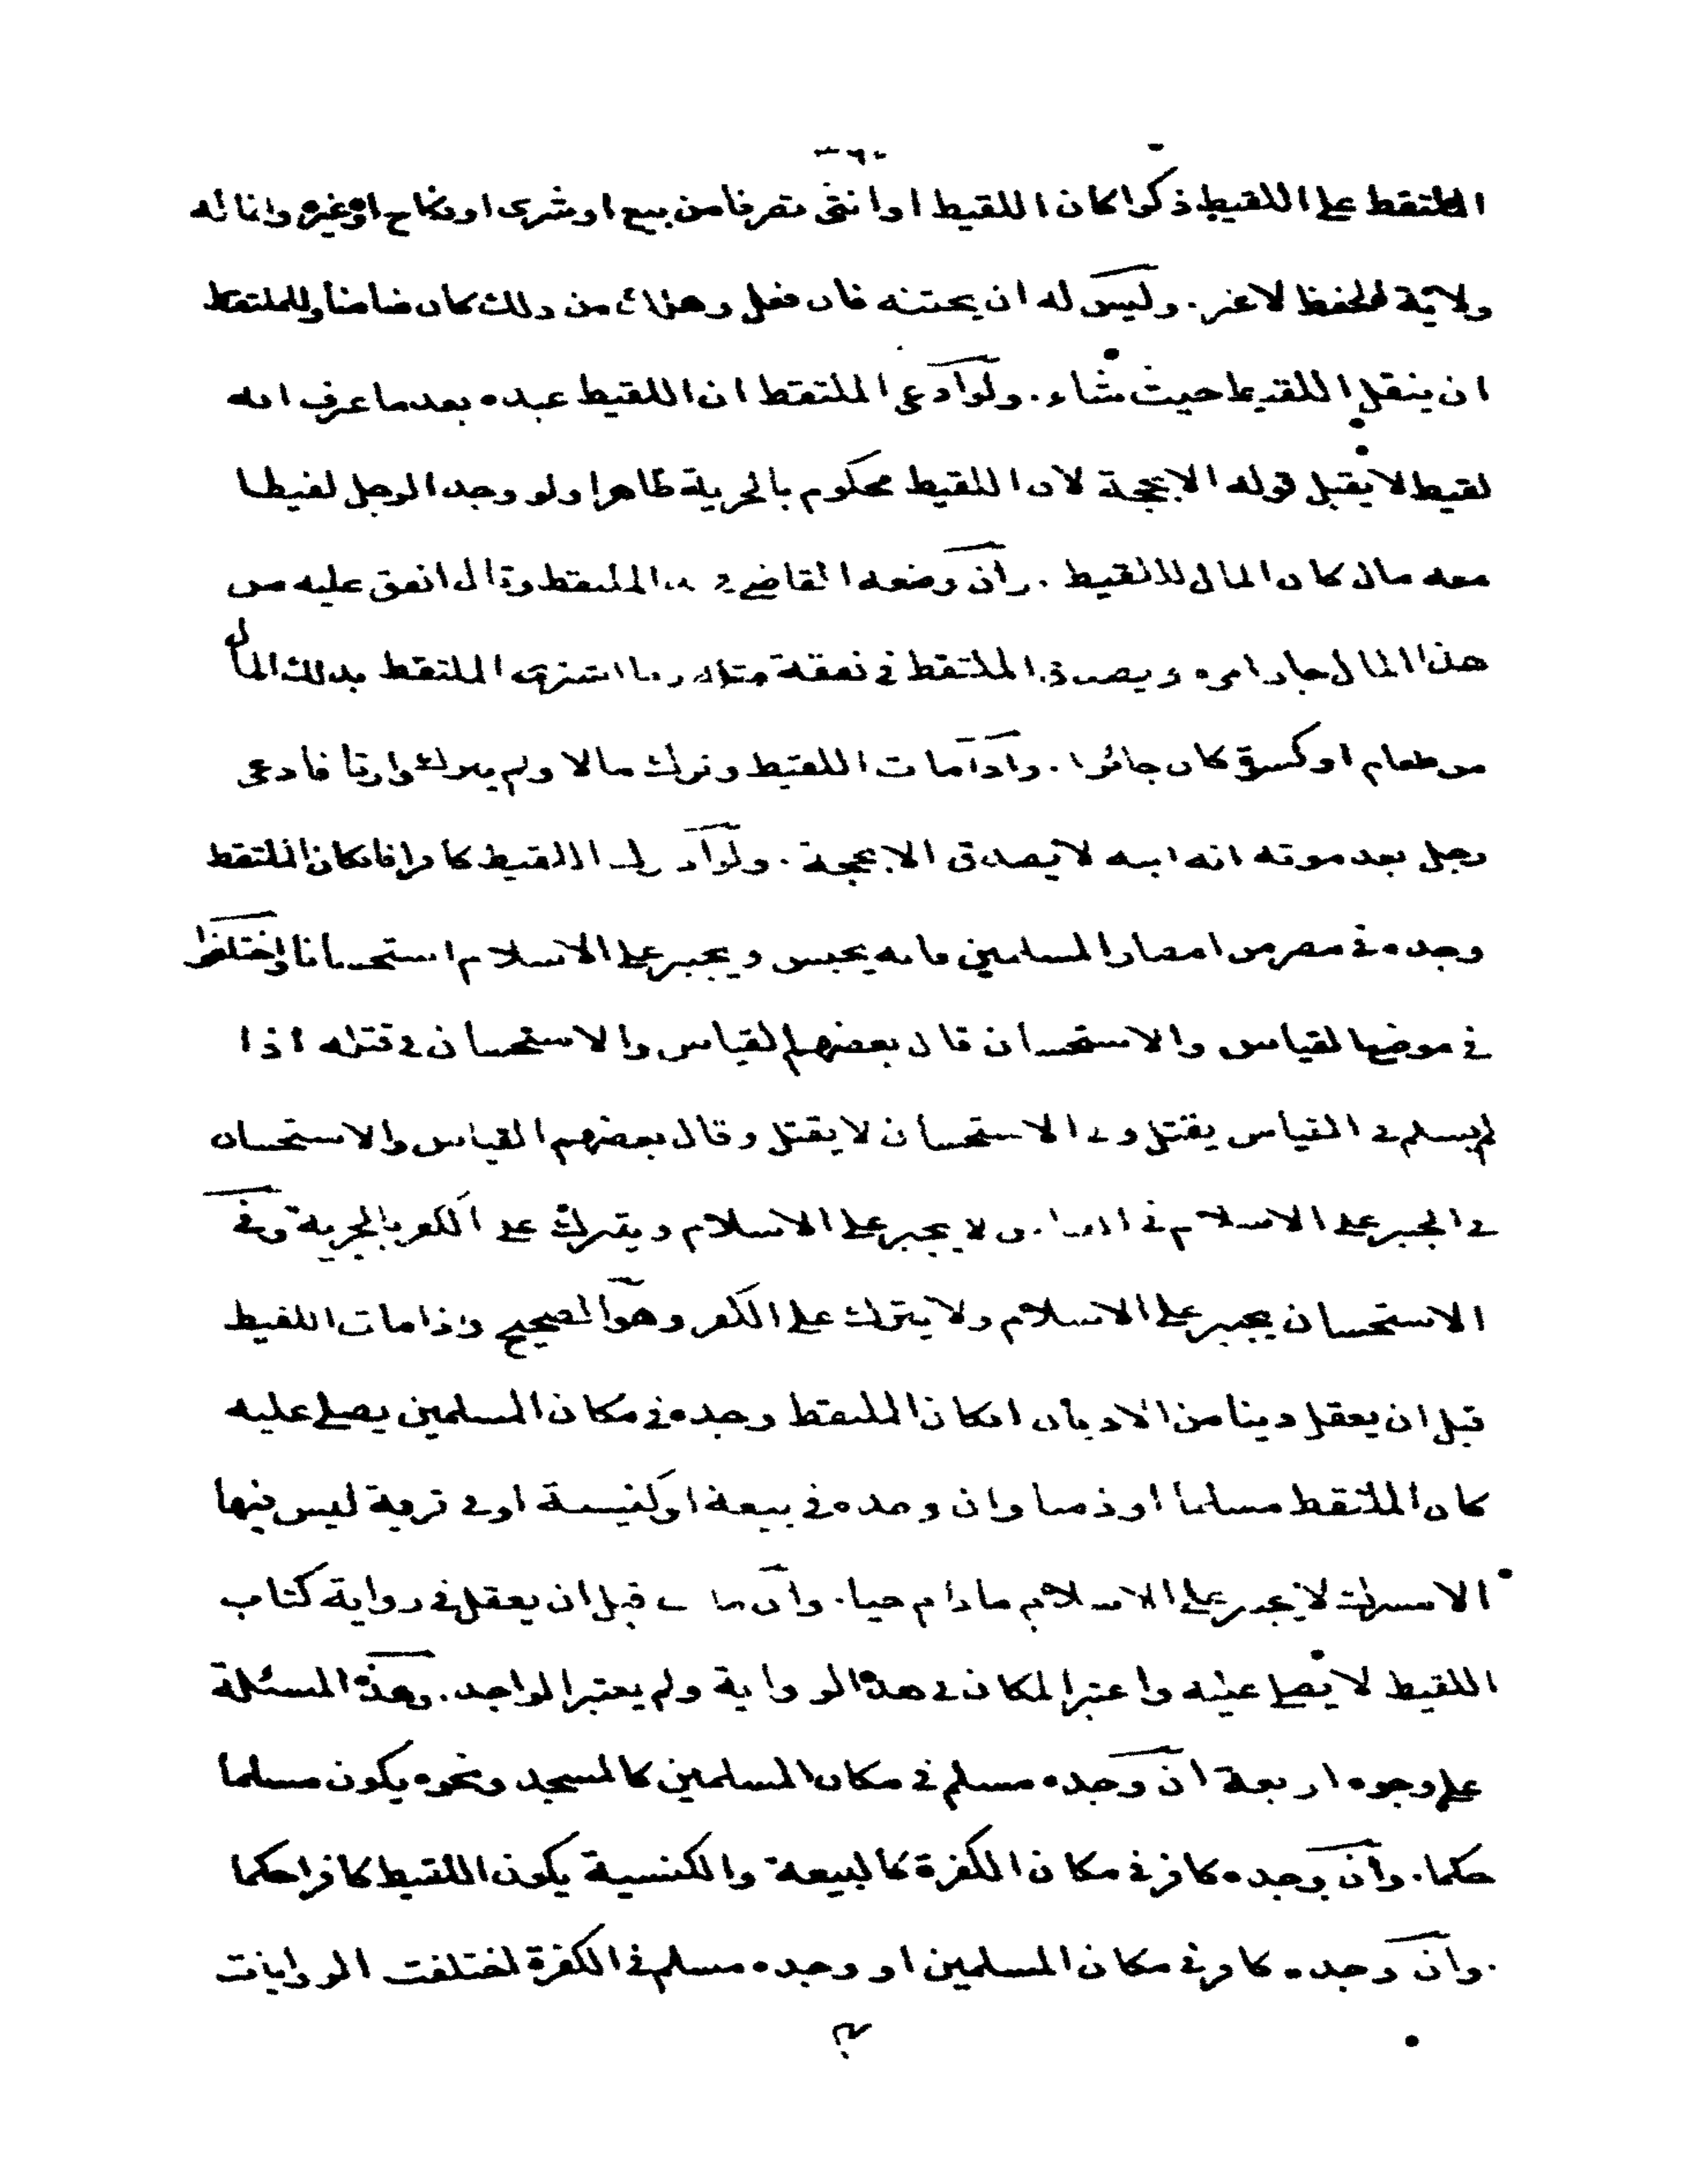 - ٦ -
الملتقط على اللقيط ذكرا كان اللقيط او انثى تصرفا من بيع او شرى او نكاح او غيره وانما له
ولاية الحفظ لا غير. وليس له ان يختنه فان فعل وهلك من ذلك كان ضامنا وللملتقط
ان ينقل اللقيط حيث شاء. ولو ادعى الملتقط ان اللقيط عبده بعدما عرف انه
لقيط لا يقبل قوله الا بحجة لان اللقيط محكوم بالحرية ظاهرا ولو وجد الرجل لقيطا
معه مال كان المال للقيط. وان وضعه القاضى فى الملتقط وقال انفق عليه من
هذا المال جاز امره ويصدق الملتقط فى نفقة مثله وما اشترى الملتقط بذلك المال
من طعام او كسوة كان جائزا. واذا مات اللقيط وترك مالا ولم يترك وارثا فادعى
رجل بعد موته انه ابنه لا يصدق الا بحجة. ولو ادرك اللقيط كافرا فان كان الملتقط
وجده فى مصر من امصار المسلمين فانه يحبس ويجبر على الاسلام استحسانا واختلفوا
فى موضع القياس والاستحسان قال بعضهم القياس والاستحسان فى قتله اذا
لم يسلم فى القياس يقتل وفى الاستحسان لا يقتل وقال بعضهم القياس والاستحسان
فى الجبر على الاسلام فى القياس لا يجبر على الاسلام ويترك على الكفر بالجزية وفى
الاستحسان يجبر على الاسلام ولا يترك على الكفر وهو الصحيح واذا مات اللقيط
قبل ان يعقل دينا من الاديان ان كان الملتقط وجده فى مكان المسلمين يصلى عليه
كان الملتقط مسلما او ذميا وان وجده فى بيعة او كنيسة او فى قرية ليس فيها
الا مشرك لا يجبر على الاسلام مادام حيا. وان مات قبل ان يعقل فى رواية كتاب
اللقيط لا يصلى عليه واعتبر المكان فى هذه الرواية ولم يعتبر الواجد. وهذه المسئلة
على وجوه اربعة ان وجده مسلم فى مكان المسلمين كالمسجد ونحوه يكون مسلما
حكما. وان وجده كافر فى مكان الكفرة كالبيعة والكنسية يكون اللقيط كافرا حكما
. وان وجده كافر فى مكان المسلمين او وجده مسلم فى الكفرة اختلفت الروايات